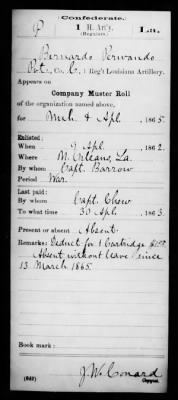 Confederate.
P 1 H. Art'y. La.
(Regulars.)
Bernardo Perwando
Co. C, 1 Reg't Louisiana Artillery.
Appears on
Company Muster Roll
of the organization named above,
for Mch. & Apl, 1865.
Enlisted:
When 9 Apl, 1862.
Where N. Orleans, La.
By whom Capt. Barrow
Period War
Last paid:
By whom Capt. Chew
To what time 30 Apl, 1863.
Present or absent Absent
Remarks: Deduct for 1 Cartridge
Absent without leave since
13 March 1865.
Book mark:
J. W. Conard
(642) Copyist.